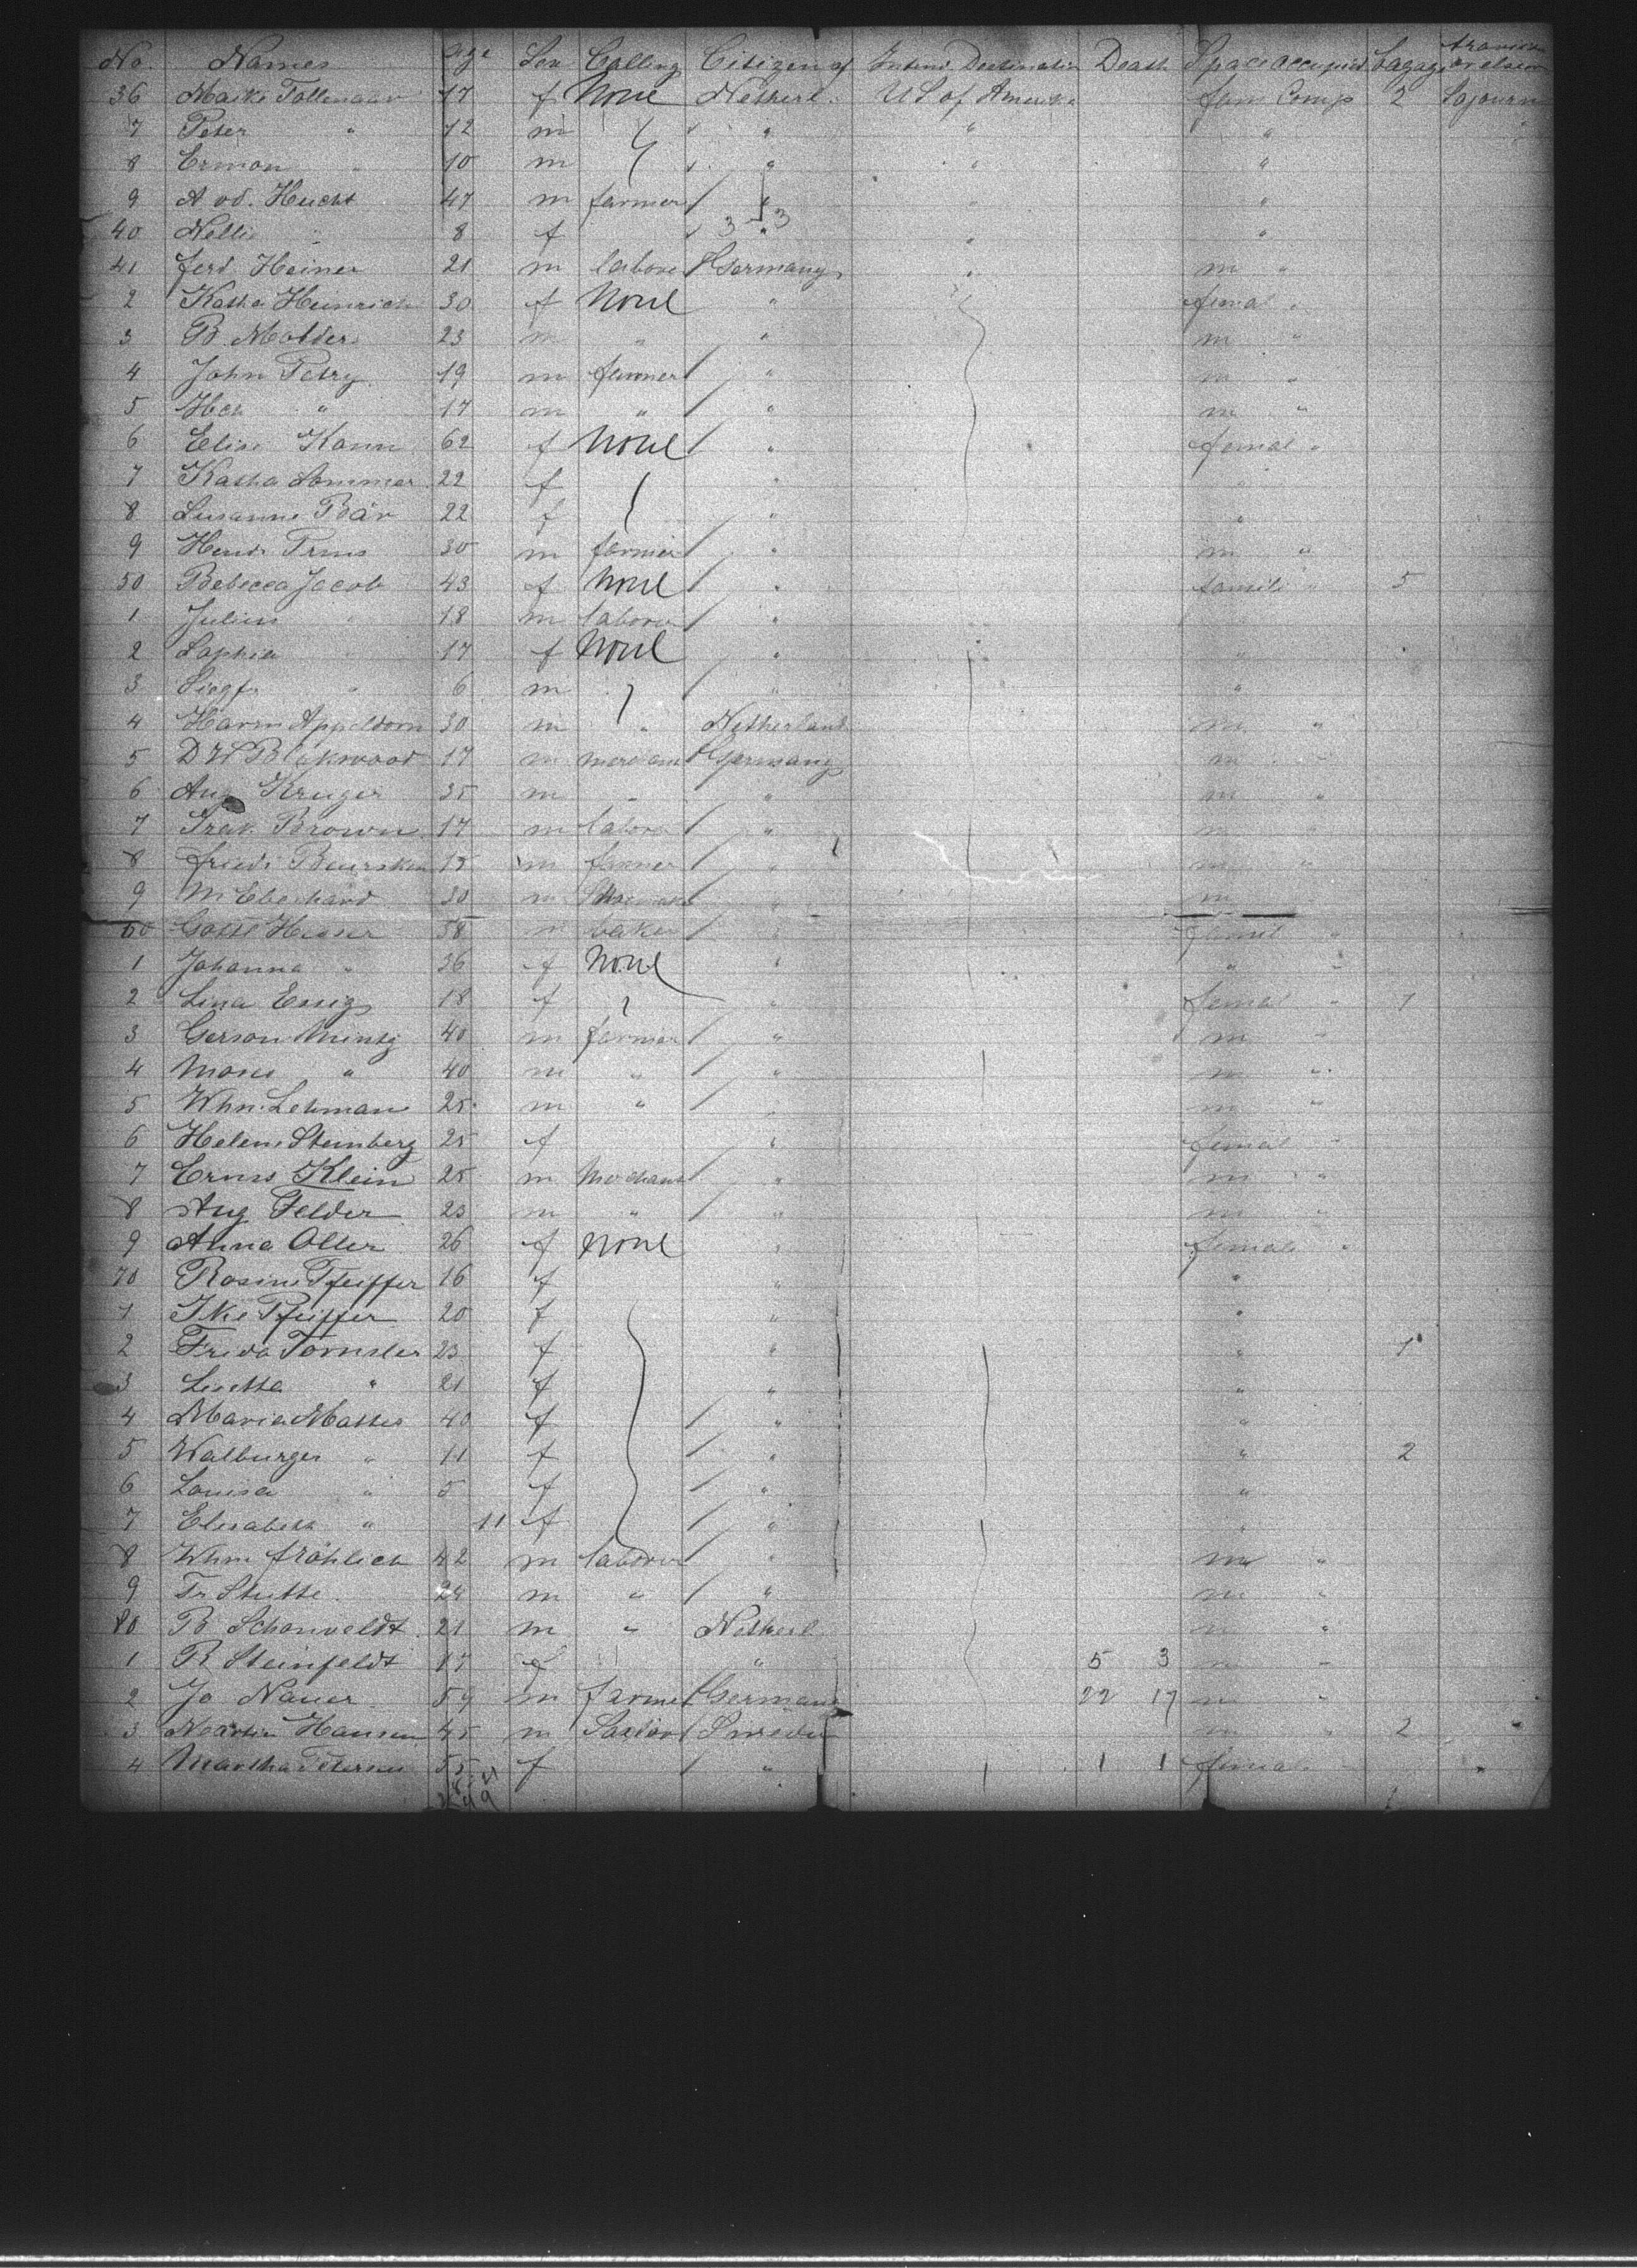 No. Names Age Sex Calling Citizen of Intend Destination Death Space occupied Lagage
36 Maike Tollenaar 17 f None Netherl. US of Amerika fam Comp 2 Sojourn
7 Peter " 12 m " " "
8 Erman " 10 m " " "
9 A vd. Hucht 47 m farmer " " "
40 Nellie " 8 f 3 " 3 " "
41 ferd. Heiner 21 m labore Germany " m "
2 Katha Heinrich 30 f None " femal "
3 B. Molders 23 m " " m "
4 John Petry 19 m farmer " m "
5 Hch " 17 m " " m "
6 Elise Kann 62 f None " femal "
7 Katha Sommer 22 f " "
8 Susanne Bär 22 f " "
9 Hend. 30 m farmer " m "
50 Rebecca Jacob 43 f None " famili " 5
1 Julius " 18 m laborer " "
2 Sophia " 17 f None " "
3 Siegf. " 6 m " "
4 Harm Appeldorn 30 m " Netherland m "
5 17 m Germany m "
6 Aug Kruger 35 m " " m "
7 Brown 17 m labore " m "
8 friedr. 15 m farmer " m "
9 M Eberhard 30 m " m
60 58 m baker " famil "
1 Johanna " 36 f None " " "
2 Lina Essig 18 f " femal " 1
3 Gerson Mintz 40 m farmer " m "
4 Moses " 40 m " " m "
5 Whn. Lehman 25 m " " m "
6 Helene Steinberg 25 f " femal "
7 Ernst Klein 25 m Merchant " m "
8 Aug Felder 23 m " " m "
9 Anna Oller 26 f None " female "
70 Rosine Pfeiffer 16 f " "
1 Pfeiffer 20 f " "
2 Frieda 23 f " " 1
3 Lisette " 21 f " "
4 Maria Mattes 40 f " "
5 Walburger " 11 f " " 2
6 Louisa " 5 f " "
7 Elisabeth " 11 f " "
8 Whn fröhlich 42 m laborer " m "
9 Fr Stutte 24 m " " m "
80 B Schonveldt 21 m " Netherl m "
1 R Steinfeldt 17 f " 5 3 m "
2 Jo Nauer 59 m farmer Germany 22 17 m "
3 Martin Hansen 45 m Sweden m " 2 "
4 Martha 55 f " 1 1 female "